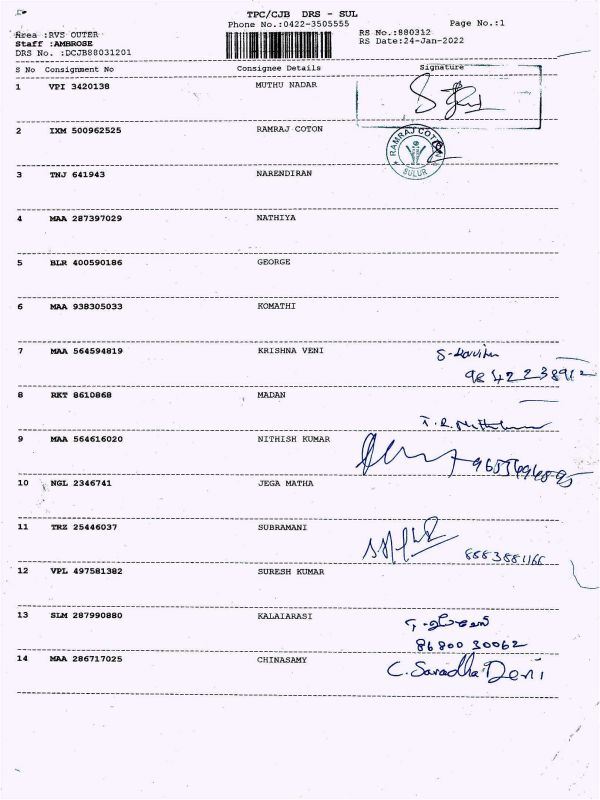 TPC/CJB DRS - SUL
Phone No.:0422-3505555
Page No.:1
Area :RVS OUTER
RS No.:880312
Staff :AMBROSE
RS Date:24-Jan-2022
DRS No. :DCJB88031201
S No Consignment No Consignee Details Signature
1 VPI 3420138 MUTHU NADAR
2 IXM 500962525 RAMRAJ COTON
RAMRAJ COTON
SULUR
3 TNJ 641943 NARENDIRAN
4 MAA 287397029 NATHIYA
5 BLR 400590186 GEORGE
6 MAA 938305033 KOMATHI
7 MAA 564594819 KRISHNA VENI
8 RKT 8610868 MADAN
9 MAA 564616020 NITHISH KUMAR
10 NGL 2346741 JEGA MATHA
11 TRZ 25446037 SUBRAMANI
8883881166
12 VPL 497581382 SURESH KUMAR
13 SLM 287990880 KALAIARASI
86800 30062
14 MAA 286717025 CHINASAMY C. Saradha Devi